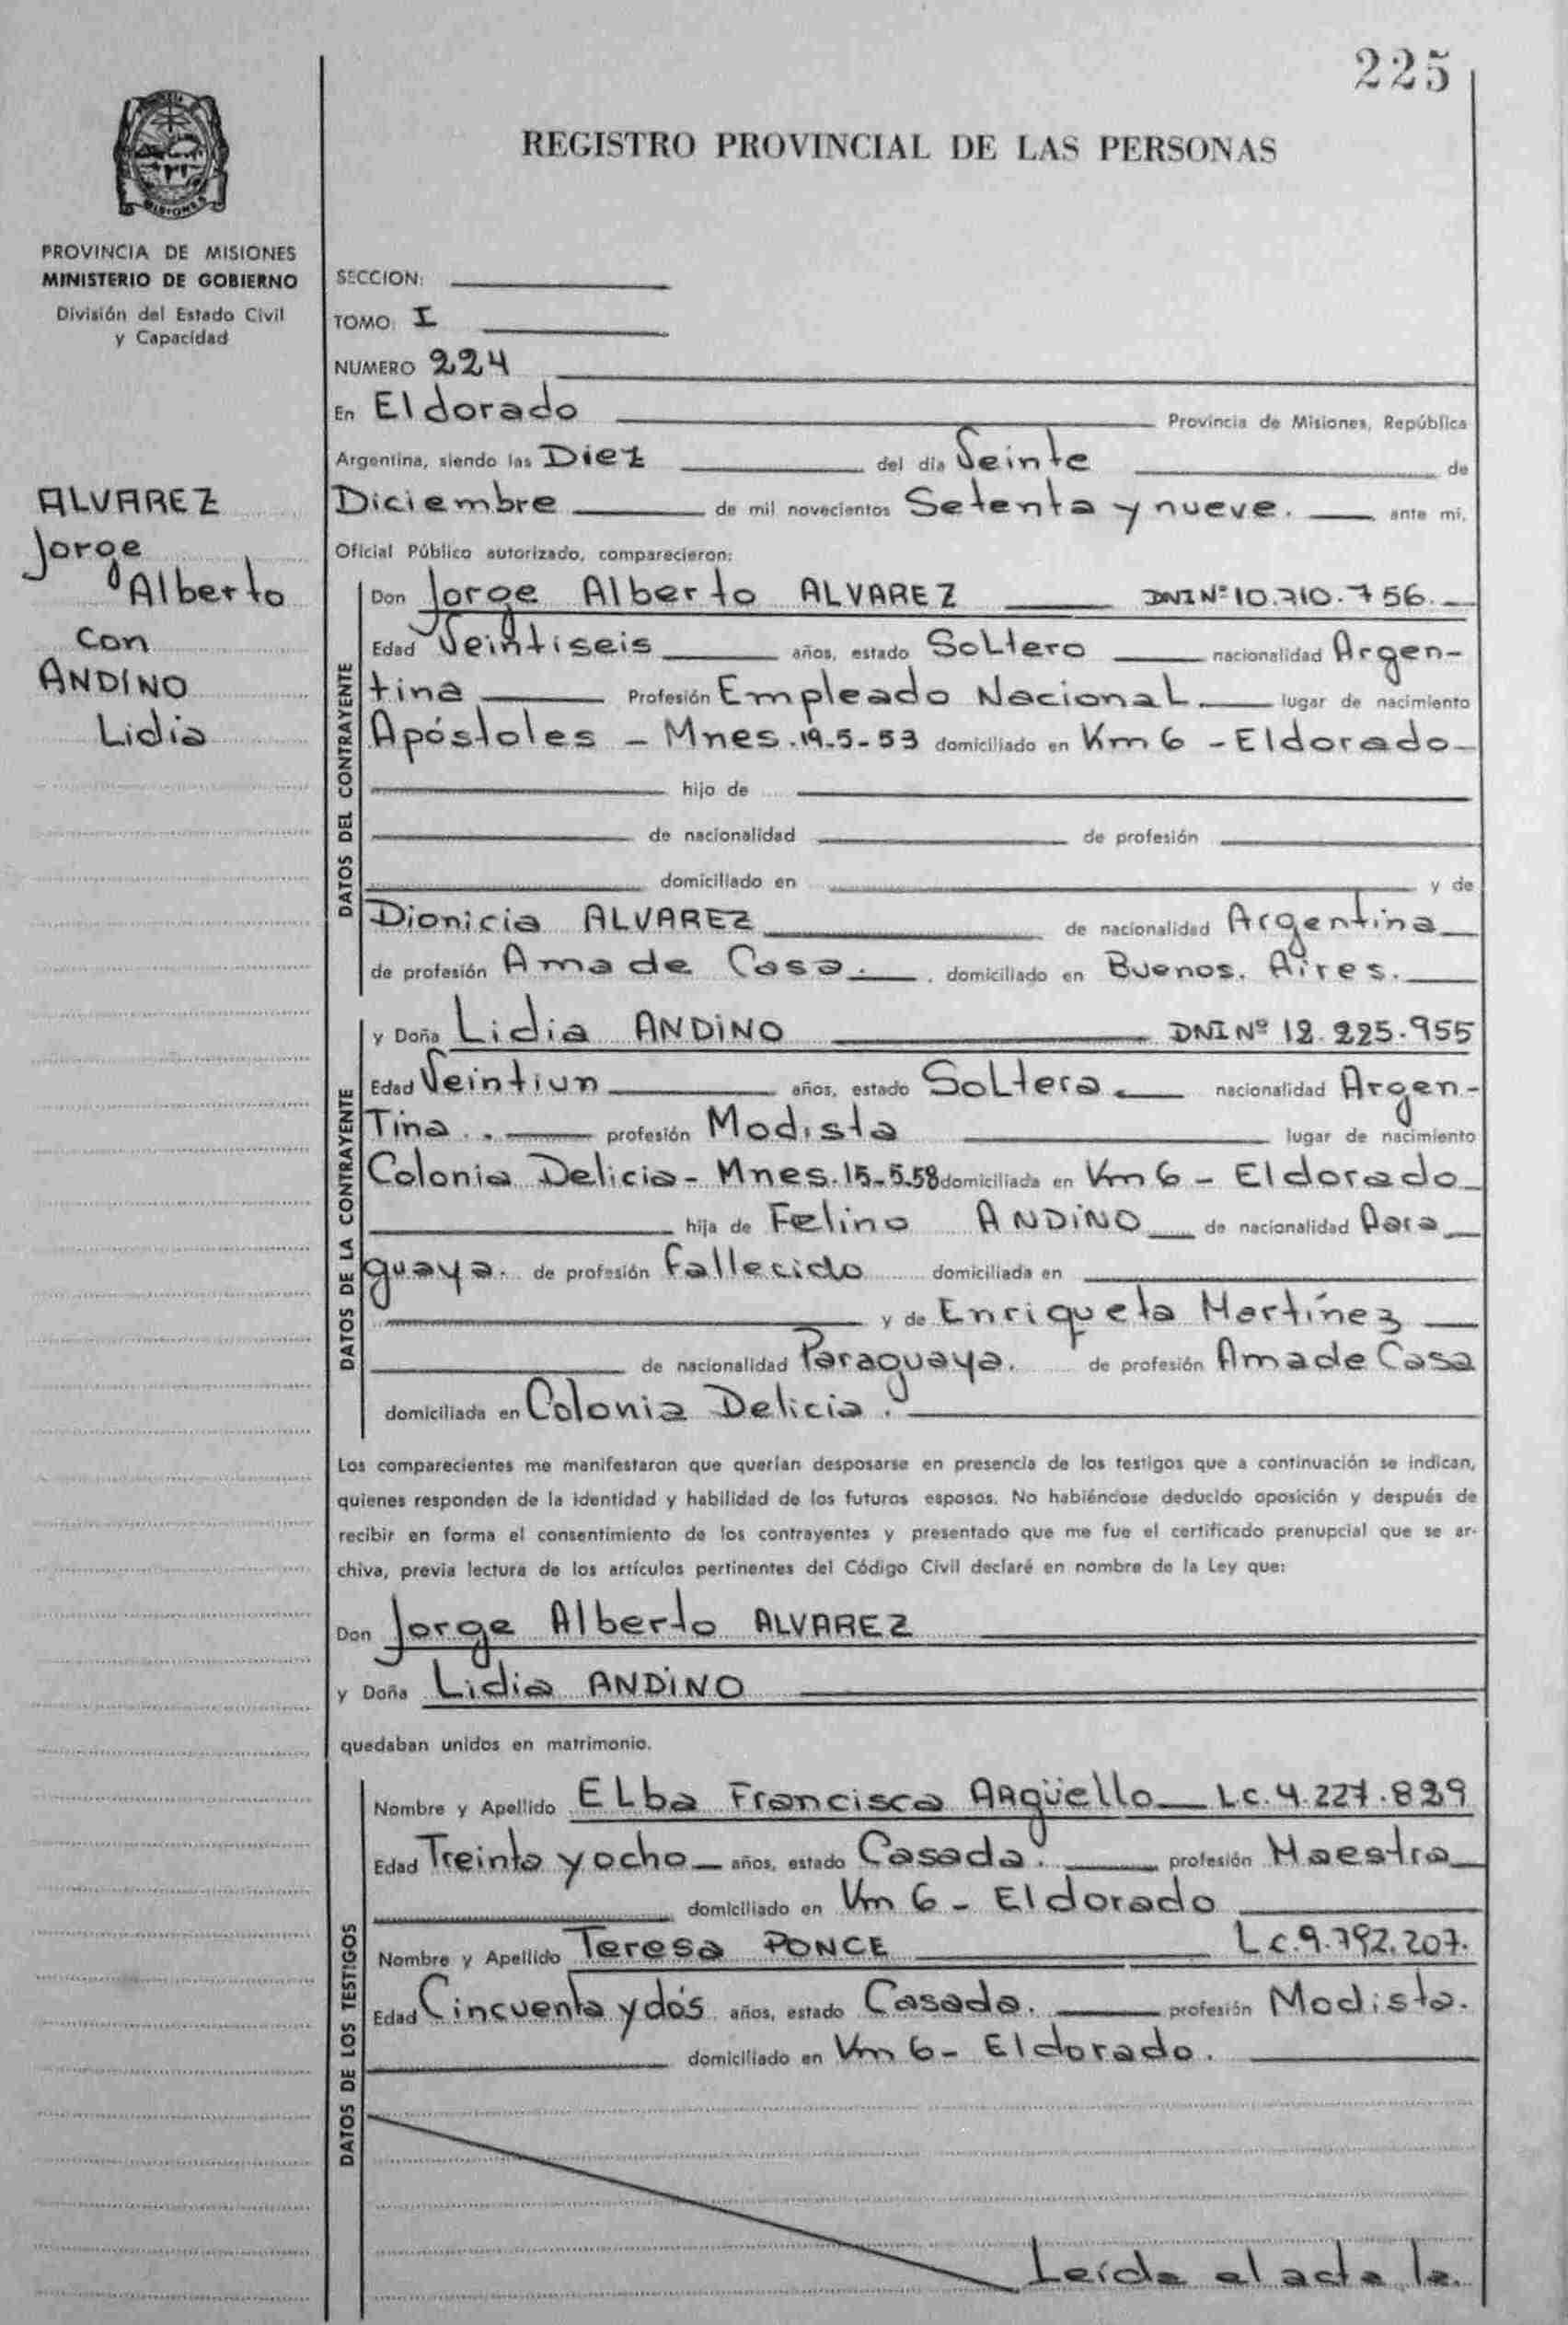 225
REGISTRO PROVINCIAL DE LAS PERSONAS
MISIONES
PROVINCIA DE MISIONES
MINISTERIO DE GOBIERNO
División del Estado Civil
y Capacidad
ALVAREZ
Jorge
Alberto
con
ANDINO
Lidia
SECCION:
TOMO: I
NUMERO 224
En Eldorado Provincia de Misiones, República
Argentina, siendo las Diez del día Veinte de
Diciembre de mil novecientos Setenta y nueve. ante mí,
Oficial Público autorizado, comparecieron:
DATOS DEL CONTRAYENTE
Don Jorge Alberto ALVAREZ DNI Nº 10.710.756.
Edad Veintiseis años, estado Soltero nacionalidad Argen-
tina Profesión Empleado Nacional. lugar de nacimiento
Apóstoles - Mnes. 19-5-53 domiciliado en Km 6 - Eldorado
hijo de
de nacionalidad de profesión
domiciliado en y de
Dionicia ALVAREZ de nacionalidad Argentina
de profesión Ama de Casa. domiciliado en Buenos. Aires.
DATOS DE LA CONTRAYENTE
y Doña Lidia ANDINO DNI Nº 12.225.955
Edad Veintiun años, estado Soltera nacionalidad Argen-
Tina.. profesión Modista lugar de nacimiento
Colonia Delicia - Mnes. 15-5-58 domiciliada en Km 6 - Eldorado
hija de Felino ANDINO de nacionalidad Para
guaya. de profesión fallecido domiciliada en
y de Enriqueta Martínez
de nacionalidad Paraguaya. de profesión Ama de Casa
domiciliada en Colonia Delicia.
Los comparecientes me manifestaron que querían desposarse en presencia de los testigos que a continuación se indican,
quienes responden de la identidad y habilidad de los futuros esposos. No habiéndose deducido oposición y después de
recibir en forma el consentimiento de los contrayentes y presentado que me fue el certificado prenupcial que se ar-
chiva, previa lectura de los artículos pertinentes del Código Civil declaré en nombre de la Ley que:
Don Jorge Alberto ALVAREZ
y Doña Lidia ANDINO
quedaban unidos en matrimonio.
DATOS DE LOS TESTIGOS
Nombre y Apellido Elba Francisca Argüello L.C. 4.227.839
Edad Treinta y ocho años, estado Casada. profesión Maestra
domiciliado en Km 6 - Eldorado
Nombre y Apellido Teresa PONCE L.C. 9.792.207.
Edad Cincuenta y dos años, estado Casada. profesión Modista.
domiciliado en Km 6 - Eldorado.
Leída el acta la